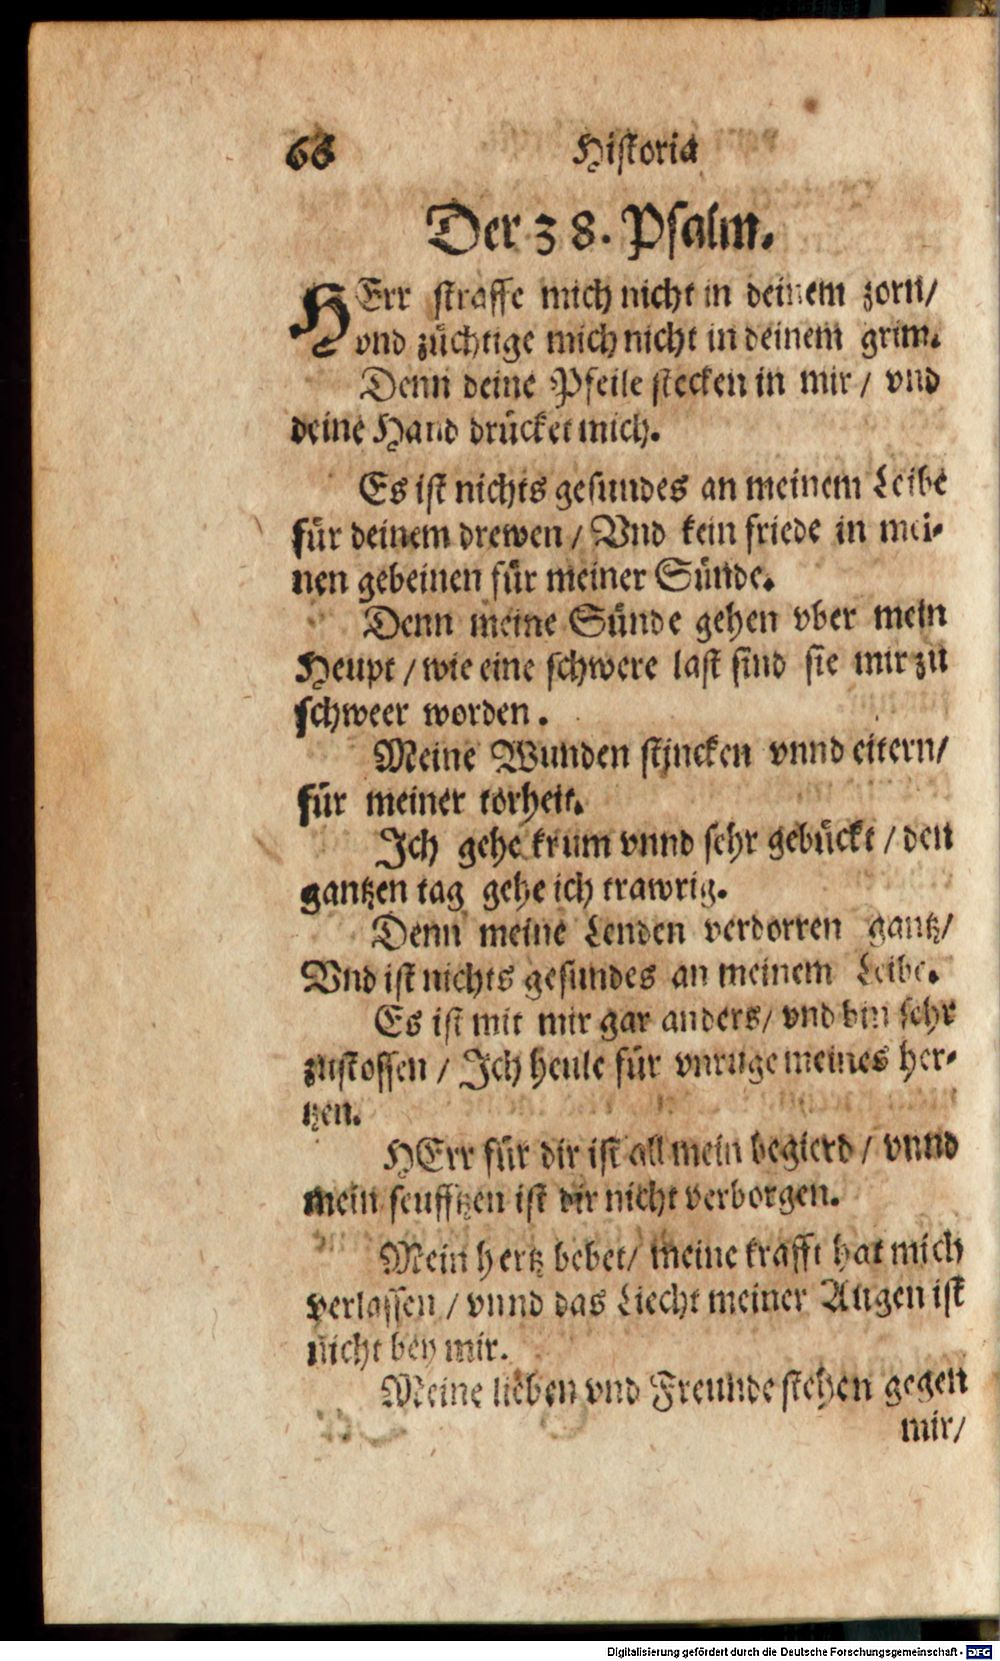 66 Historia
Der 38. Psalm.
HErr straffe mich nicht in deinem zorn/
vnd züchtige mich nicht in deinem grim.
Denn deine Pfeile stecken in mir / vnd
deine Hand drücket mich.
Es ist nichts gesundes an meinem Leibe
für deinem drewen / Vnd kein friede in mei-
nen gebeinen für meiner Sünde.
Denn meine Sünde gehen vber mein
Heupt / wie eine schwere last sind sie mir zu
schweer worden.
Meine Wunden stincken vnnd eitern/
für meiner torheit.
Ich gehe krum vnnd sehr gebückt / den
gantzen tag gehe ich trawrig.
Denn meine Lenden verdorren gantz/
Vnd ist nichts gesundes an meinem Leibe.
Es ist mit mir gar anders/ vnd bin sehr
zustossen / Ich heule für vnruge meines her-
tzen.
HErr für dir ist all mein begierd / vnnd
mein seufftzen ist dir nicht verborgen.
Mein hertz bebet/ meine krafft hat mich
verlassen / vnnd das Liecht meiner Augen ist
nicht bey mir.
Meine lieben vnd Freunde stehen gegen
mir/
Digitalisierung gefördert durch die Deutsche Forschungsgemeinschaft - DFG